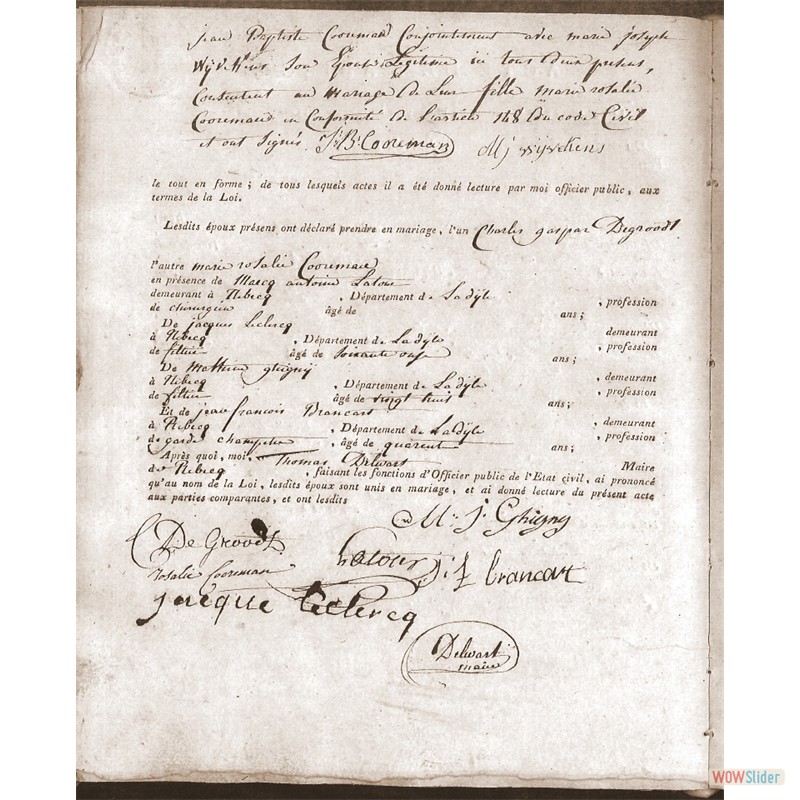 jean Baptiste Cooreman Conjointement avec marie joseph
Wijvekens son Epouse Legitime ici tous deux presens,
Consentent au Mariage de Leur fille marie rosalie
Cooreman en Conformité de l'article 148 du code Civil
et ont Signés J:B:Cooreman Mj wijvekens
le tout en forme ; de tous lesquels actes il a été donné lecture par moi officier public, aux
termes de la Loi.
Lesdits époux présens ont déclaré prendre en mariage, l'un Charles gaspar Degroodt
l'autre marie rosalie Cooreman
en présence de Marcq antoine Latour
demeurant à Rebecq , Département de La dyle , profession
de chirurgien âgé de ans ;
De jacques Leclercq demeurant
à Rebecq , Département de La dyle , profession
de filtier âgé de soixante onze ans ;
De Mathieu ghignij , demeurant
à Rebecq , Département de La dyle , profession
de filtier âgé de vingt huit ans ;
Et de jean francois Brancart , demeurant
à Rebecq , Département de La dyle , profession
de garde champetre , âgé de quarente ans ;
Après quoi, moi, Thomas Delwart Maire
de Rebecq , faisant les fonctions d'Officier public de l'Etat civil, ai prononcé
qu'au nom de la Loi, lesdits époux sont unis en mariage, et ai donné lecture du présent acte
aux parties comparantes, et ont lesdits
M: J Ghigny
C De Groodt
Latour J: f brancart
rosalie Cooreman
jacque leclercq
Delwart
maire
WOWSlider